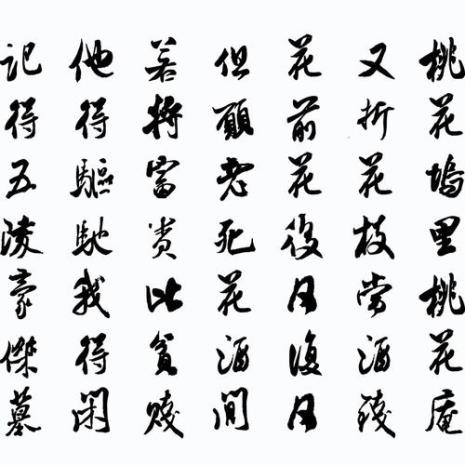 桃花塢里桃花庵
又折花枝當酒錢
花前花後日復日
但願老死花酒間
若將富貴比貧賤
他得驅馳我得閑
記得五陵豪傑墓